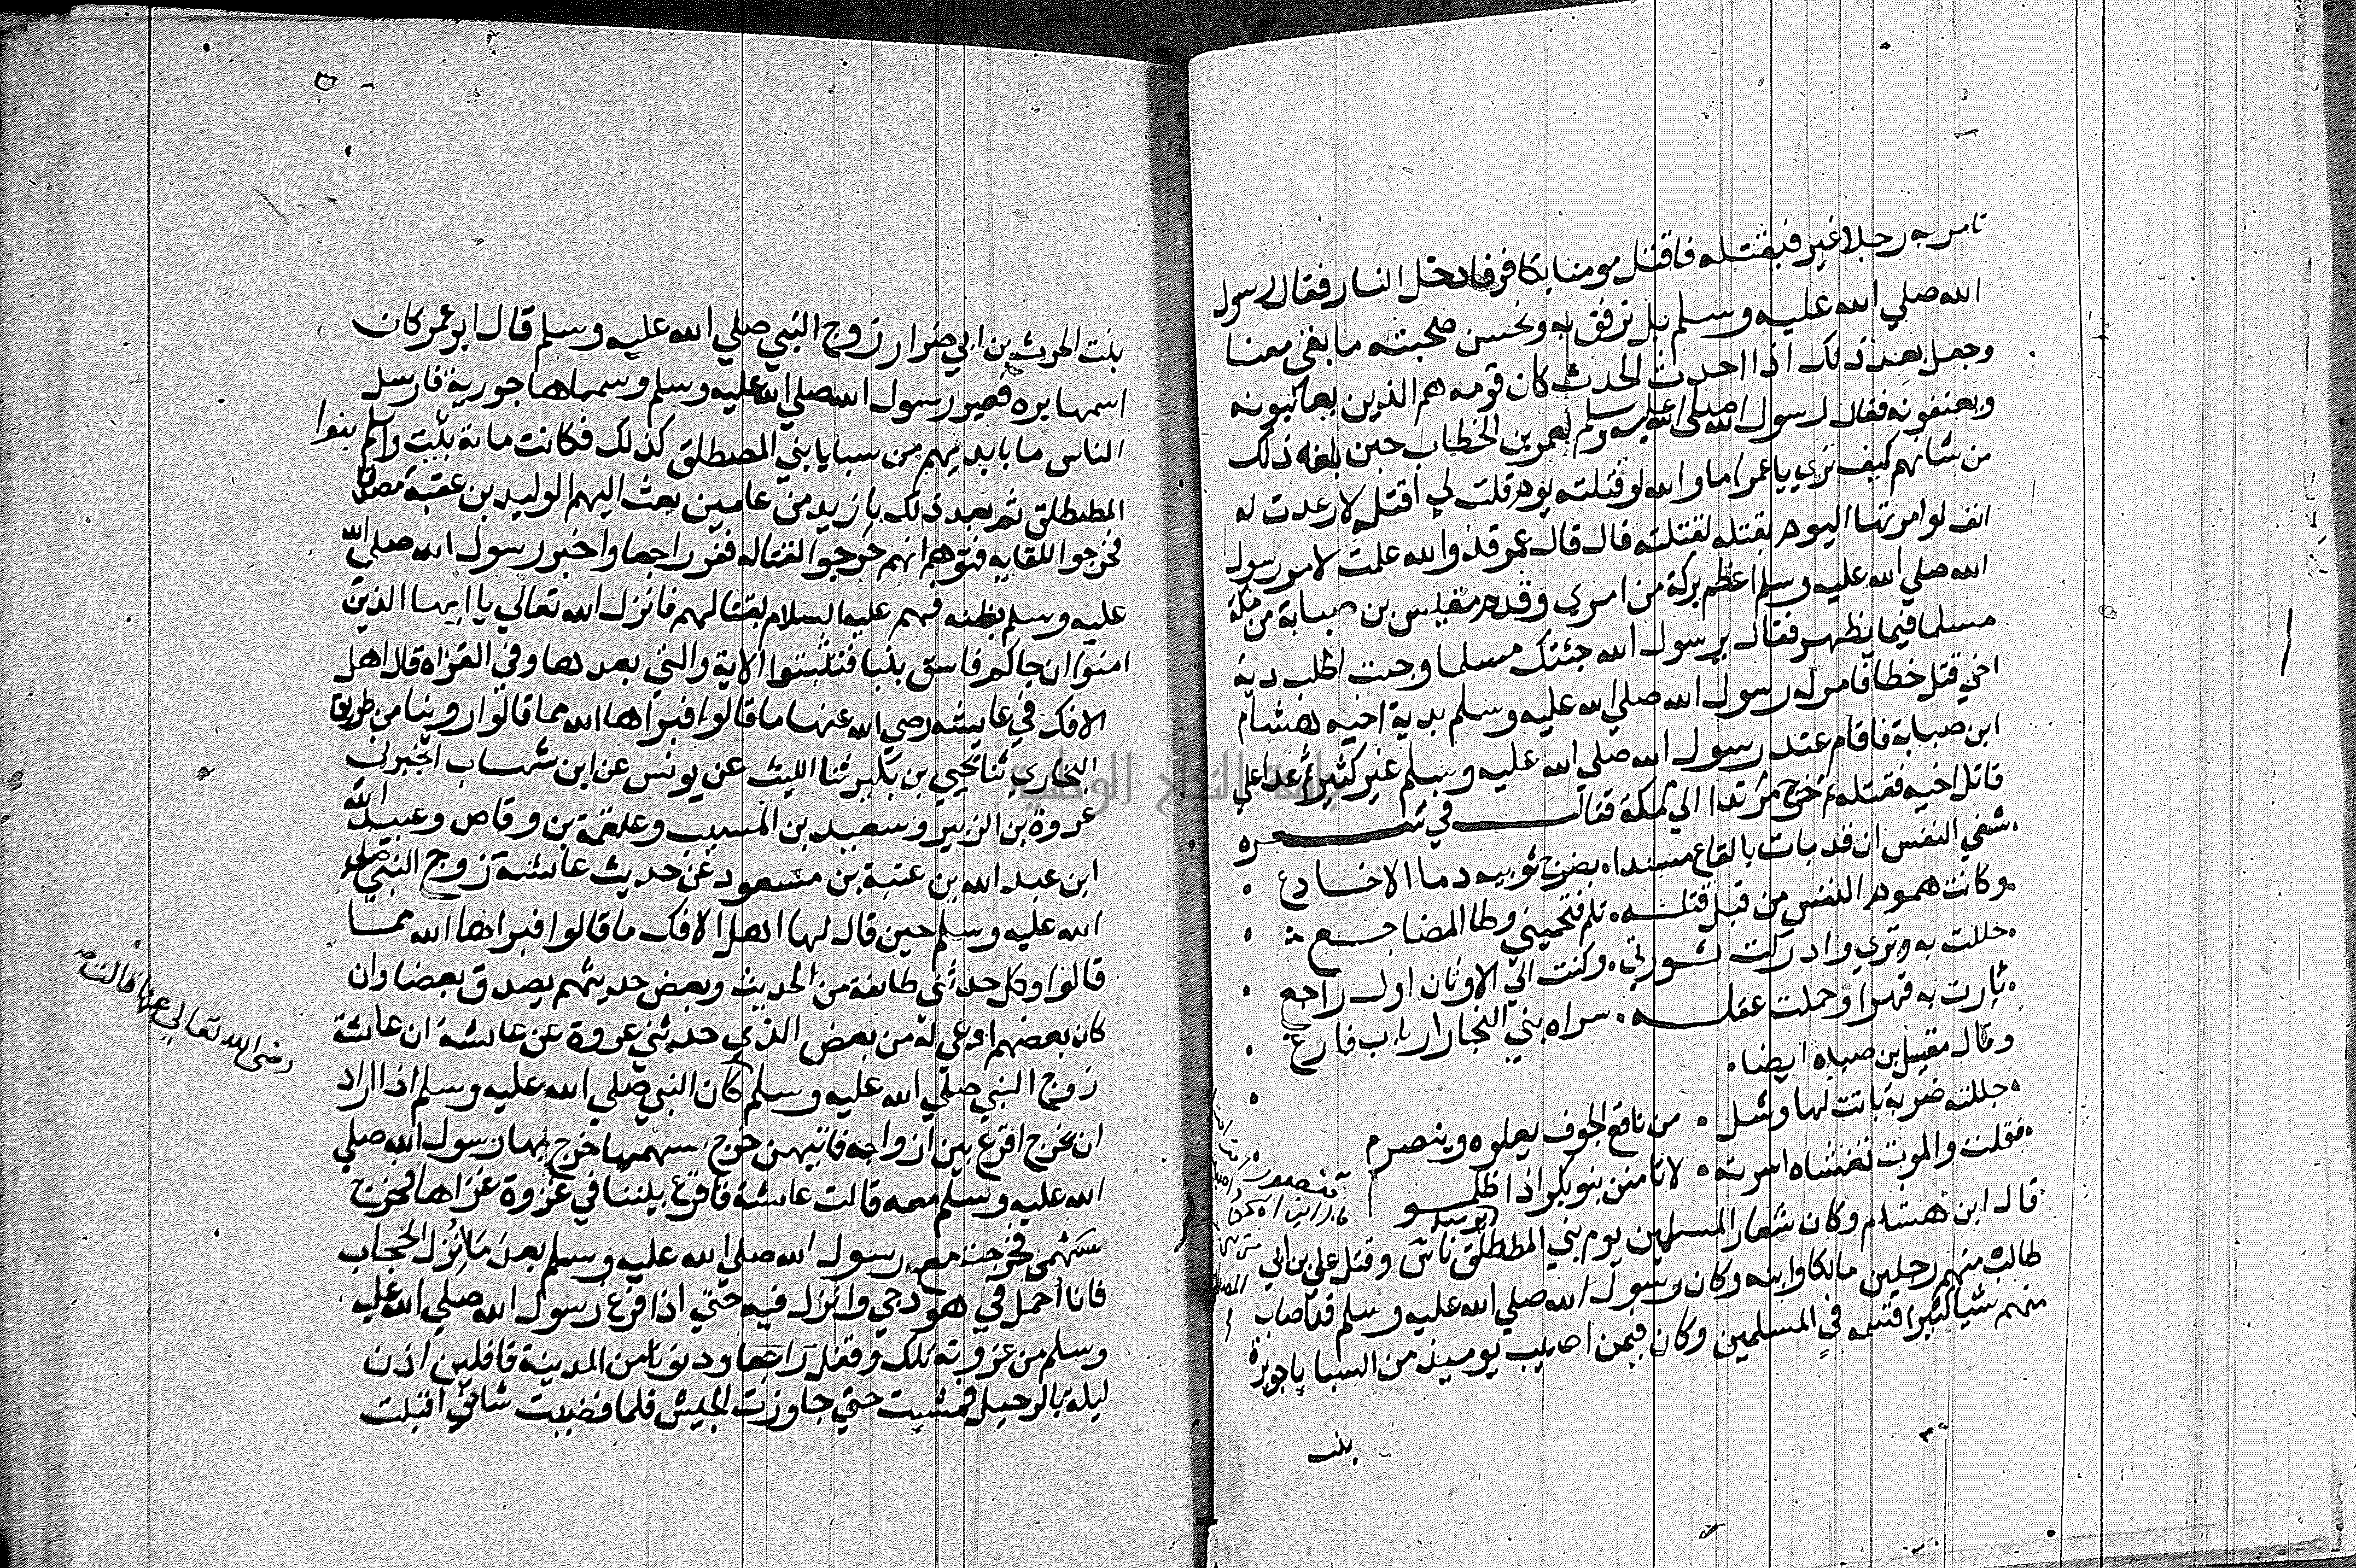 تامر به رجلا غيري فيقتله فاقتل مومنا بكافر فادخل النار فقال رسول
الله صلي الله عليه وسلم بل نرفق به ونحسن صحبته ما بقي معنا
وجعل بعد ذلك اذا احدث الحدث كان قومه هم الذين يعاتبونه
ويعنفونه فقال رسول الله صلي الله عليه وسلم لعمر بن الخطاب حين بلغه ذلك
من شانهم كيف تري يا عمر اما والله لو قتلته يوم قلت لي اقتله لارعدت له
انف لو امرتها اليوم بقتله لقتلته قال قال عمر قد والله علمت لامر رسول
الله صلي الله عليه وسلم اعظم بركة من امري وقدم مقيس بن صبابة من مكة
مسلما فيما يظهر فقال يرسول الله جئتك مسلما وجئت اطلب دية
اخي قتل خطا فامر له رسول الله صلي الله عليه وسلم بدية اخيه هشام
ابن صبابة فاقام عند رسول الله صلي الله عليه وسلم غير كثير ثم عدا علي
قاتل اخيه فقتله ثم خرج مرتدا الي مكة فقال في شعره
شفي النفس ان قد بات بالقاع مسندا • يضرج ثوبيه دما الاخادع •
وكانت هموم النفس من قبل قتله • تلم فتحميني وطا المضاجع •
حللت به وتري وادركت ثورتي • وكنت الي الاوثان اول راجع •
ثارت به قهرا وحملت عقله • سراه بني النجار ارباب فارع •
وقال مقيس بن صبابه ايضا •
جللته ضربة باتت لها وشل • من ناقع الجوف يعلوه وينصرم
فقلت والموت تغشاه اسرته • لا تامنن بنو بكر اذا ظلموا
قال ابن هشام وكان شعار المسلمين يوم بني المصطلق
ناس وقتل علي بن ابي
طالب منهم رجلين مالكا وابنه وكان رسول الله صلي الله عليه وسلم قد اصاب
منهم سبيا كثيرا قسمه في المسلمين وكان فيمن اصيب يوميذ من السبايا جويرية
بنت
بنت الحرث بن ابي ضرار زوج النبي صلي الله عليه وسلم قال ابو عمر كان
اسمها بره فغير رسول الله صلي الله عليه وسلم وسماها جويرية فارسل
الناس ما بايديهم من سبايا بني المصطلق كذلك فكانت ماية بيت واسلم بنوا
المصطلق ثم بعد ذلك بازيد من عامين بعث اليهم الوليد بن عقبة مصدقا
فخرجوا للقايه فتوهم انهم خرجوا لقتاله ففر راجعا واخبر رسول الله صلي الله
عليه وسلم بظنه فهم عليه السلام بقتالهم فانزل الله تعالي يا ايها الذين
امنوا ان جاكم فاسق بنبا فتثبتوا الاية والتي بعدها وفي الغزاه قال اهل
الافك في عايشه رضي الله عنها ما قالوا فبراها الله مما قالوا روينا من طريق
البخاري ثنا يحيي بن بكير ثنا الليث عن يونس عن ابن شهاب اخبرني
عروة بن الزبير وسعيد بن المسيب وعلقمة بن وقاص وعبيد الله
ابن عبد الله بن عتبة بن مسعود عن حديث عائشة زوج النبي صلي
الله عليه وسلم حين قال لها اهل الافك ما قالوا فبراها الله مما
قالوا وكل حدثني طائفة من الحديث وبعض حديثهم يصدق بعضا وان
كان بعضهم اوعي له من بعض الذي حدثني عروة عن عائشة ان عائشة
رضي الله تعالي عنها قالت
زوج النبي صلي الله عليه وسلم كان النبي صلي الله عليه وسلم اذا اراد
ان يخرج اقرع بين ازواجه فايتهن خرج سهمها خرج بها رسول الله صلي
الله عليه وسلم معه قالت عائشة فاقرع بيننا في غزوة غزاها فخرج
سهمي فخرجت مع رسول الله صلي الله عليه وسلم بعد ما نزل الحجاب
فانا احمل في هودجي وانزل فيه حتي اذا فرغ رسول الله صلي الله عليه
وسلم من غزوته تلك وقفل راجعا ودنونا من المدينة قافلين اذن
ليلة بالرحيل فمشيت حتي جاوزت الجيش فلما قضيت شاني اقبلت
جامعة النجاح الوطنية